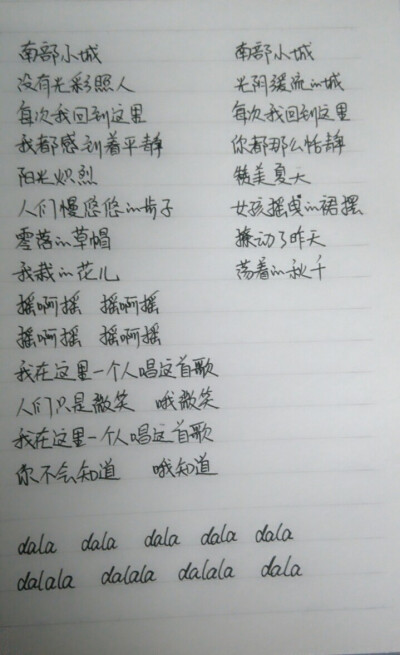 南部小城
没有光彩照人
每次我回到这里
我都感到着平静
阳光炽烈
人们慢悠悠的步子
零落的草帽
我栽的花儿
南部小城
光阴缓流的城
每次我回到这里
你都那么恬静
彼美夏天
女孩摇曳的裙摆
撩动了昨天
荡着的秋千
摇啊摇 摇啊摇
摇啊摇 摇啊摇
我在这里一个人唱这首歌
人们只是微笑 哦微笑
我在这里一个人唱这首歌
你不会知道 哦知道
dala dala dala dala dala
dalala dalala dalala dala